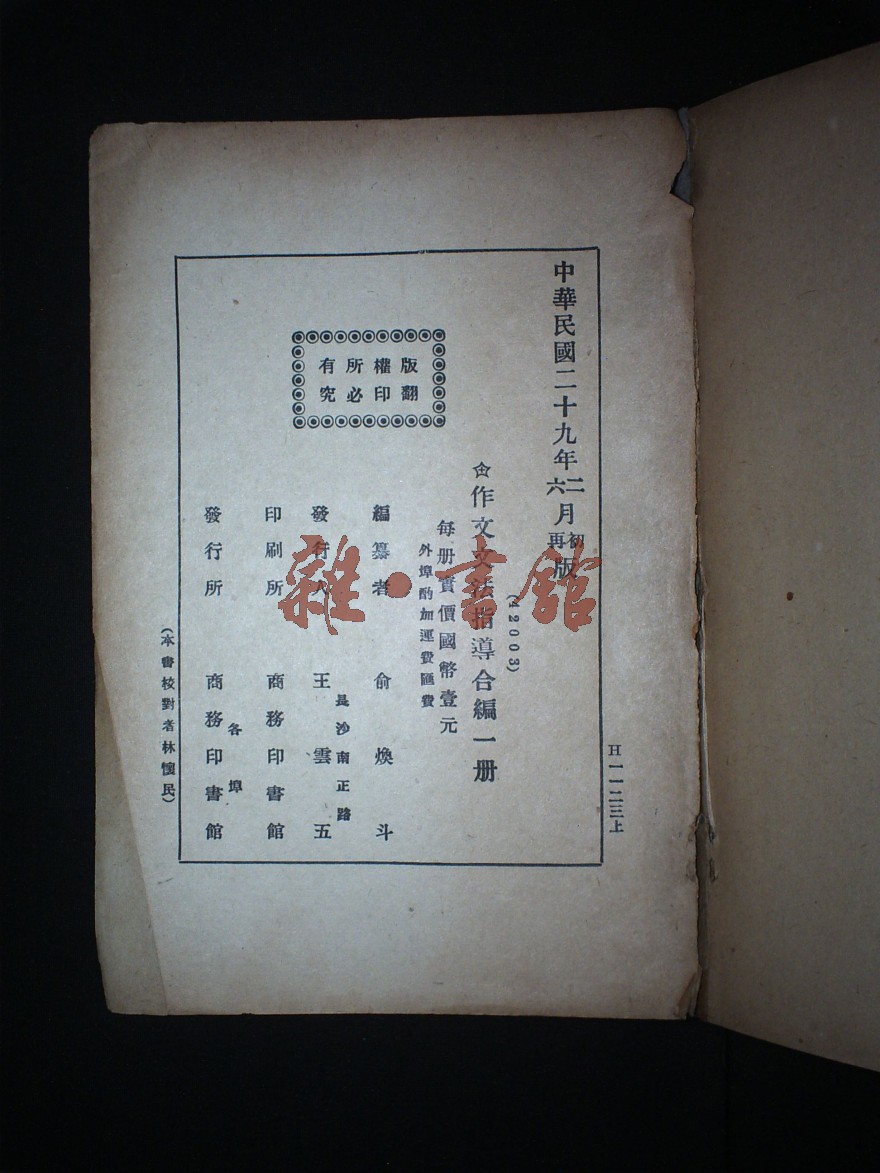 H一一二三上
中華民國二十九年二六月初再版
(42003)
㊎作文文法指導合編一册
每册實價國幣壹元
外埠酌加運費匯費
版權所有
翻印必究
編纂者 俞煥斗
長沙南正路
發行人 王雲五
印刷所 商務印書館
各埠
發行所 商務印書館
(本書校對者林懷民)
雜·書館